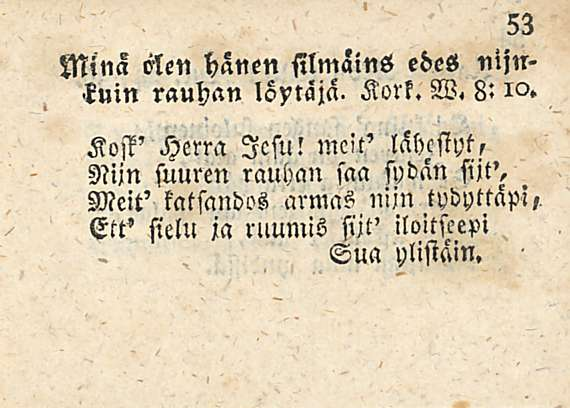 53
Minä olen hänen silmäins edes nijn-
kuin rauhan löytäjä. Kork. W. 8: 10.
Kosk' Herra Jesu! meit' lähestyt,
Nijn suuren rauhan saa sydän sijt',
Meit' katsandos armas nijn tydyttäpi,
Ett' sielu ja ruumis sijt' iloitseepi
Sua ylistäin.